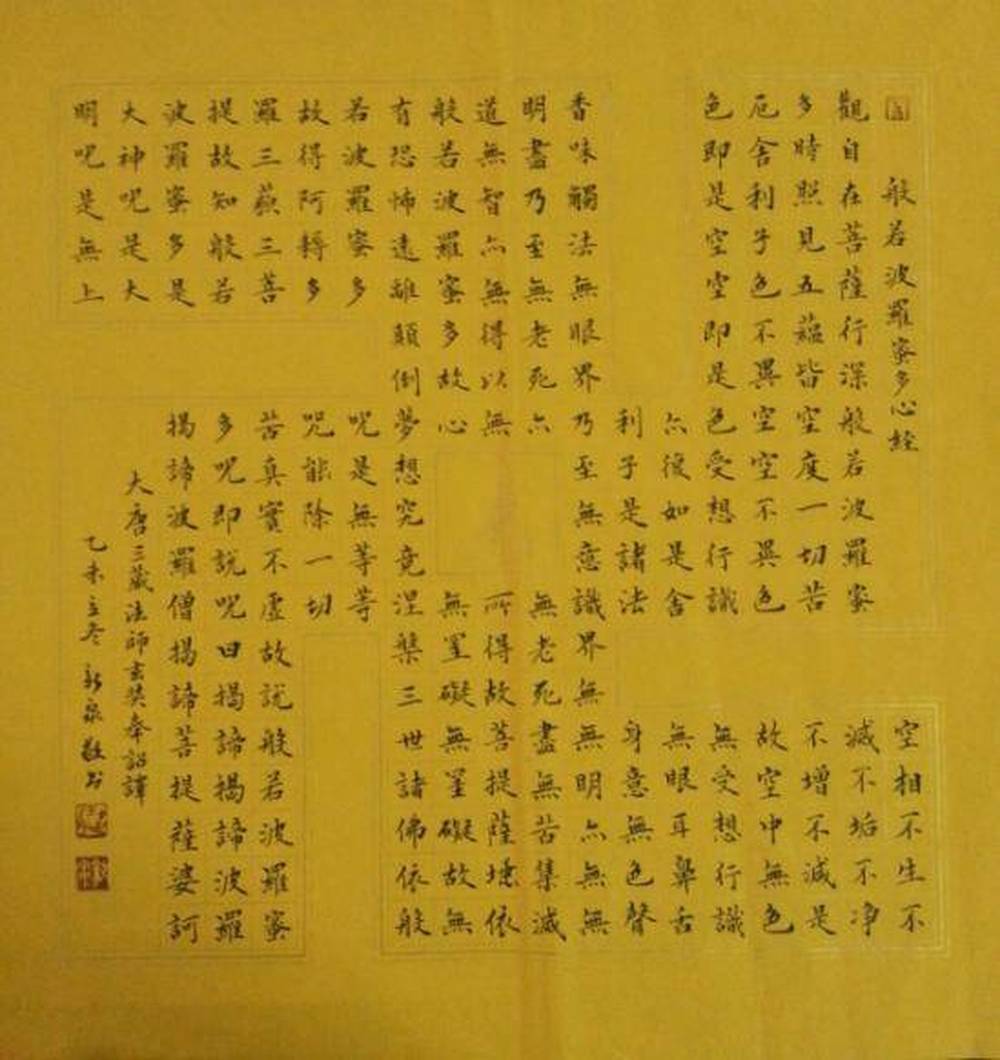 般若波羅蜜多心經
觀自在菩薩行深般若波羅蜜
多時照見五蘊皆空度一切苦
厄舍利子色不異空空不異色
色即是空空即是色受想行識
亦復如是舍
利子是諸法
空相不生不
滅不垢不净
不增不減是
故空中無色
無受想行識
無眼耳鼻舌
身意無色聲
香味觸法無眼界乃至無意識界無無明亦無無
明盡乃至無老死亦
無老死盡無苦集滅
道無智亦無得以無
所得故菩提薩埵依
般若波羅蜜多故心
無罣礙無罣礙故無
有恐怖遠離顛倒夢想究竟涅槃三世諸佛依般
若波羅蜜多
故得阿耨多
羅三藐三菩
提故知般若
波羅蜜多是
大神呪是大
明呪是無上
呪是無等等
咒能除一切
苦真實不虛故說般若波羅蜜
多呪即說呪曰揭諦揭諦波羅
揭諦波羅僧揭諦菩提薩婆訶
大唐三藏法師玄奘奉詔譯
乙未立冬 新泉敬書